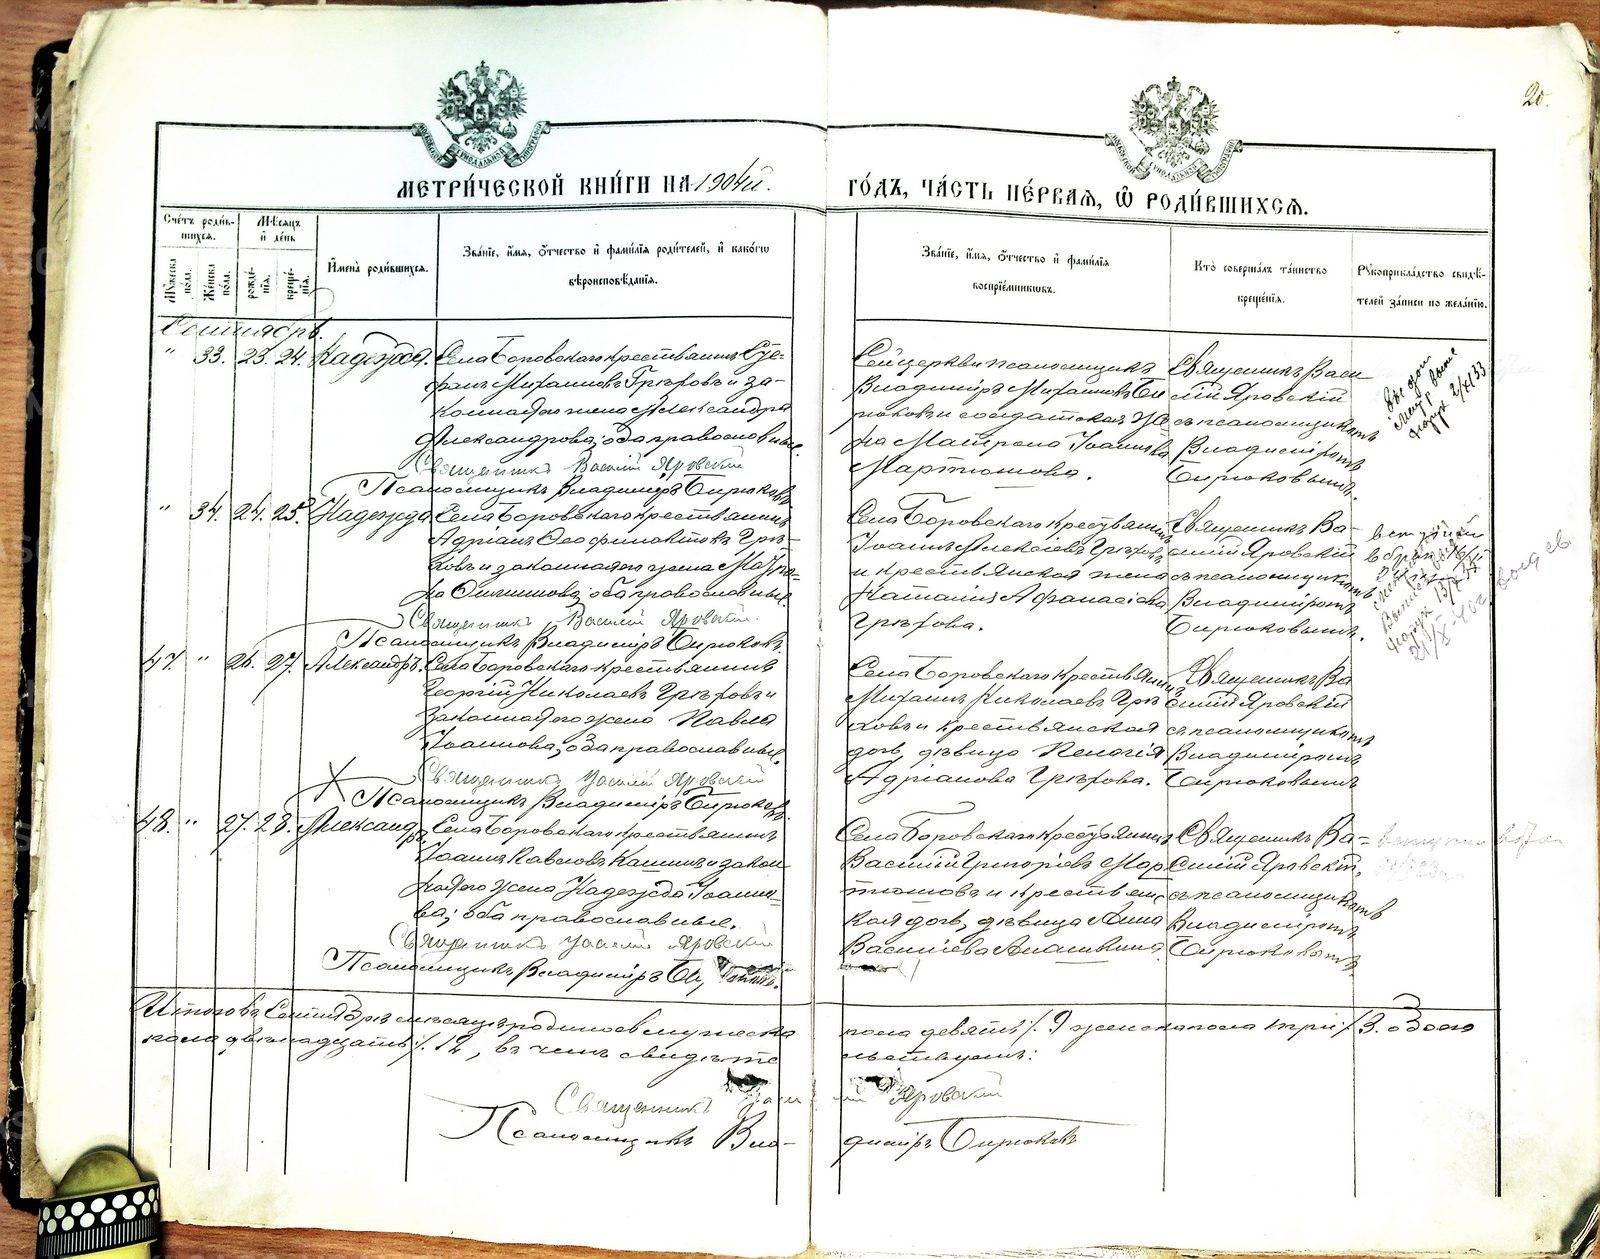 20.
МОСКОВСКОЙ СѴНОДАЛЬНОЙ ТИПОГРАФІИ
МОСКОВСКОЙ СѴНОДАЛЬНОЙ ТИПОГРАФІИ
МЕТРИ́ЧЕСКОЙ КНИ́ГИ НА 1904й.
ГО́ДЪ, ЧА́СТЬ ПЕ́РВАЯ, Ѽ РОДИ́ВШИХСЯ.
Сче́тъ роди́в-
шихся.
Мѣсяцъ
и҆ де́нь
Мꙋжеска по́ла.
Же́нска по́ла.
рожде́-
нїя.
креще́-
нїя.
И҆мена̀ роди́вшихся.
Зва́нїе, и҆́мя, ѻ҆́тчество и҆ фами́лїя роди́телей, и҆ како́гѡ
вѣроисповѣ́данїя.
Зва́нїе, и҆́мя, ѻ҆́тчество и҆ фами́лїя
воспрїе́мникѡвъ.
Кто̀ соверша́лъ та́инство
креще́нїя.
Рꙋкоприкла́дство свидѣ́-
телей за́писи по жела́нїю.
Сентябрь.
" 33. 23. 24. Надежда.
Села Боровскаго крестьянинъ Сте-
фанъ Михаиловъ Грѣховъ и за-
конная его жена Александра
Александрова; оба православные.
Священникъ Василій Яровскій
Псаломщикъ Владиміръ Бирюковъ.
Сей церкви псаломщикъ
Владиміръ Михаиловъ Би
рюковъ и солдатская же
на Матрона Іоаннова
Мартюшова.
Священникъ Васи
лій Яровскій
съ псаломщикомъ
Владиміромъ
Бирюковымъ.
2/XI 33
" 34. 24. 25. Надежда
Села Боровскаго крестьянинъ
Адріанъ Ѳеофилактовъ Грѣ-
ховъ и законная его жена Матро-
на; оба православные.
Священникъ Василій Яровскій.
Псаломщикъ Владиміръ Бирюковъ.
Села Боровскаго крестьянинъ
Іоаннъ Алексіевъ Грѣховъ
и крестьянская жена
Наталія Аѳанасіева
Грѣхова.
Священникъ Ва-
силій Яровскій
съ псаломщикомъ
Владиміромъ
Бирюковымъ.
47. " 26. 27. Александръ.
Села Боровскаго крестьянинъ
Георгій Николаевъ Грѣховъ и
законная его жена Павла
Іоаннова; оба православные.
Священникъ Василій Яровскій
Псаломщикъ Владиміръ Бирюковъ.
Села Боровскаго крестьянинъ
Михаилъ Николаевъ Грѣ
ховъ и крестьянская
дочь, дѣвица Пелагія
Адріанова Грѣхова.
Священникъ Ва
силій Яровскій
съ псаломщикомъ
Владиміромъ
Бирюковымъ
48. " 27. 28. Александръ.
Села Боровскаго крестьянинъ
Іоаннъ Павловъ и закон
ная его жена Надежда Іоанно-
ва; оба православные.
Священникъ Василій Яровскій
Псаломщикъ Владиміръ
Села Боровскаго крестьянинъ
Василій Григоріевъ Мар
тюшовъ и крестьян
ская дочь, дѣвица Анна
Васильева
Священникъ Ва-
силій Яровскій
съ псаломщикомъ
Владиміромъ
Бирюковымъ.
Итого въ Сентябрѣ мѣсяцѣ родилось мужеска
пола девять / 9 женска пола три / 3. обоего
пола двѣнадцать /. 12, въ чемъ свидѣте
льствуемъ:
Священникъ Василій Яровскій
Псаломщикъ Вла-
диміръ Бирюковъ